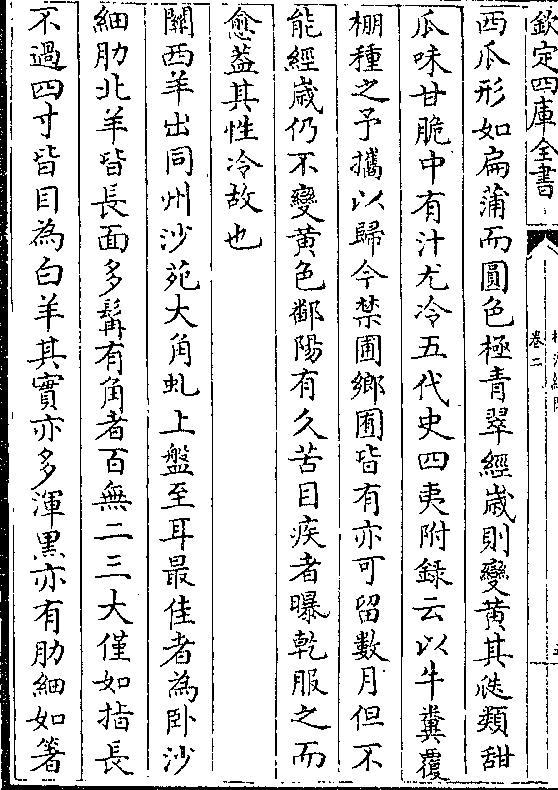 欽定四庫全書
卷二
西瓜形如扁蒲而圓色極青翠經歲則變黃其瓞類甜
瓜味甘脆中有汁尤冷五代史四夷附錄云以牛糞覆
棚種之予攜以歸今禁圃鄉囿皆有亦可留數月但不
能經歲仍不變黃色鄱陽有久苦目疾者曝乾服之而
愈葢其性冷故也
關西羊出同州沙苑大角虬上盤至耳最佳者為卧沙
細肋北羊皆長面多髯有角者百無二三大僅如指長
不過四寸皆目為白羊其實亦多渾黑亦有肋細如箸